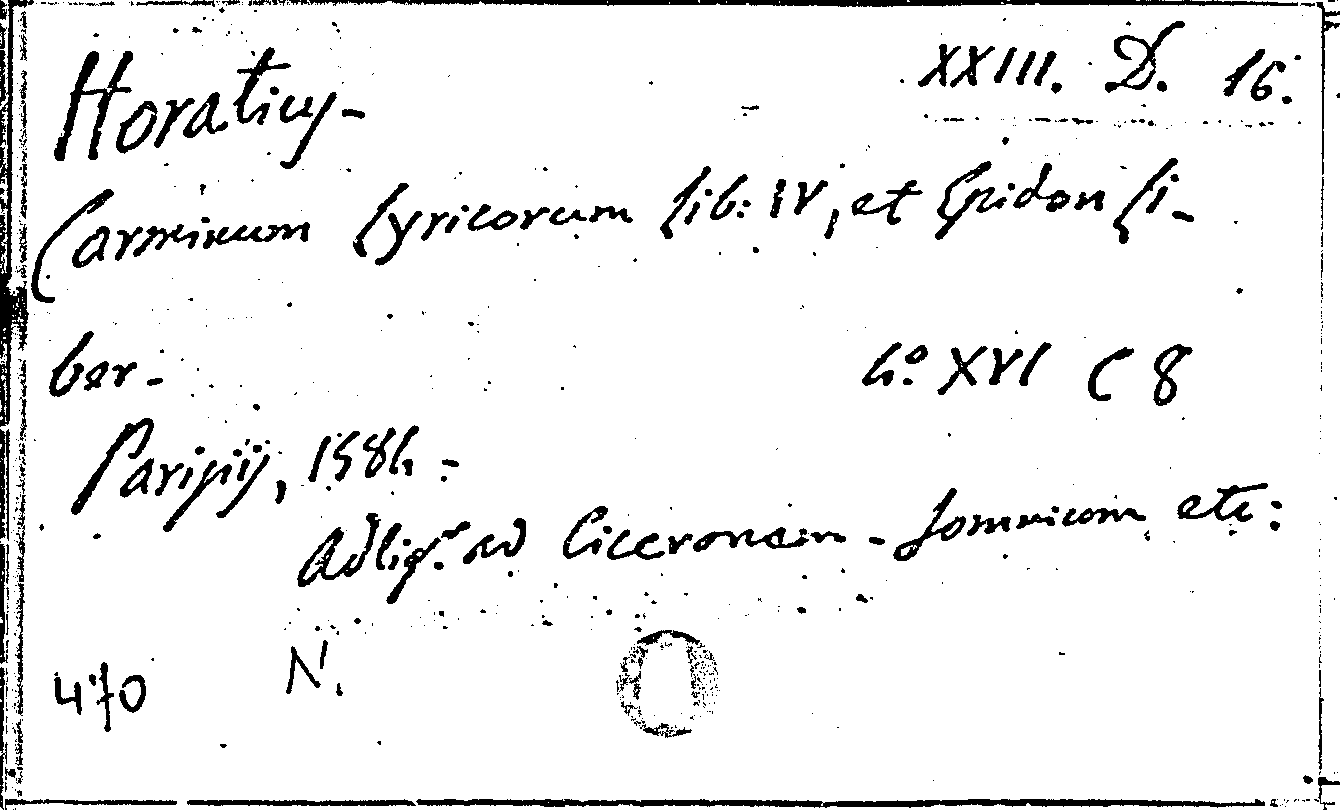 Horatius - XXIII. D. 16.
Carminum Lyricorum Lib: IV, et Epidon Li-
ber - 4º. XVI C 8
Parisijs, 1584 -
Adligr. ad Ciceronem - Somnium etc:
470 N.